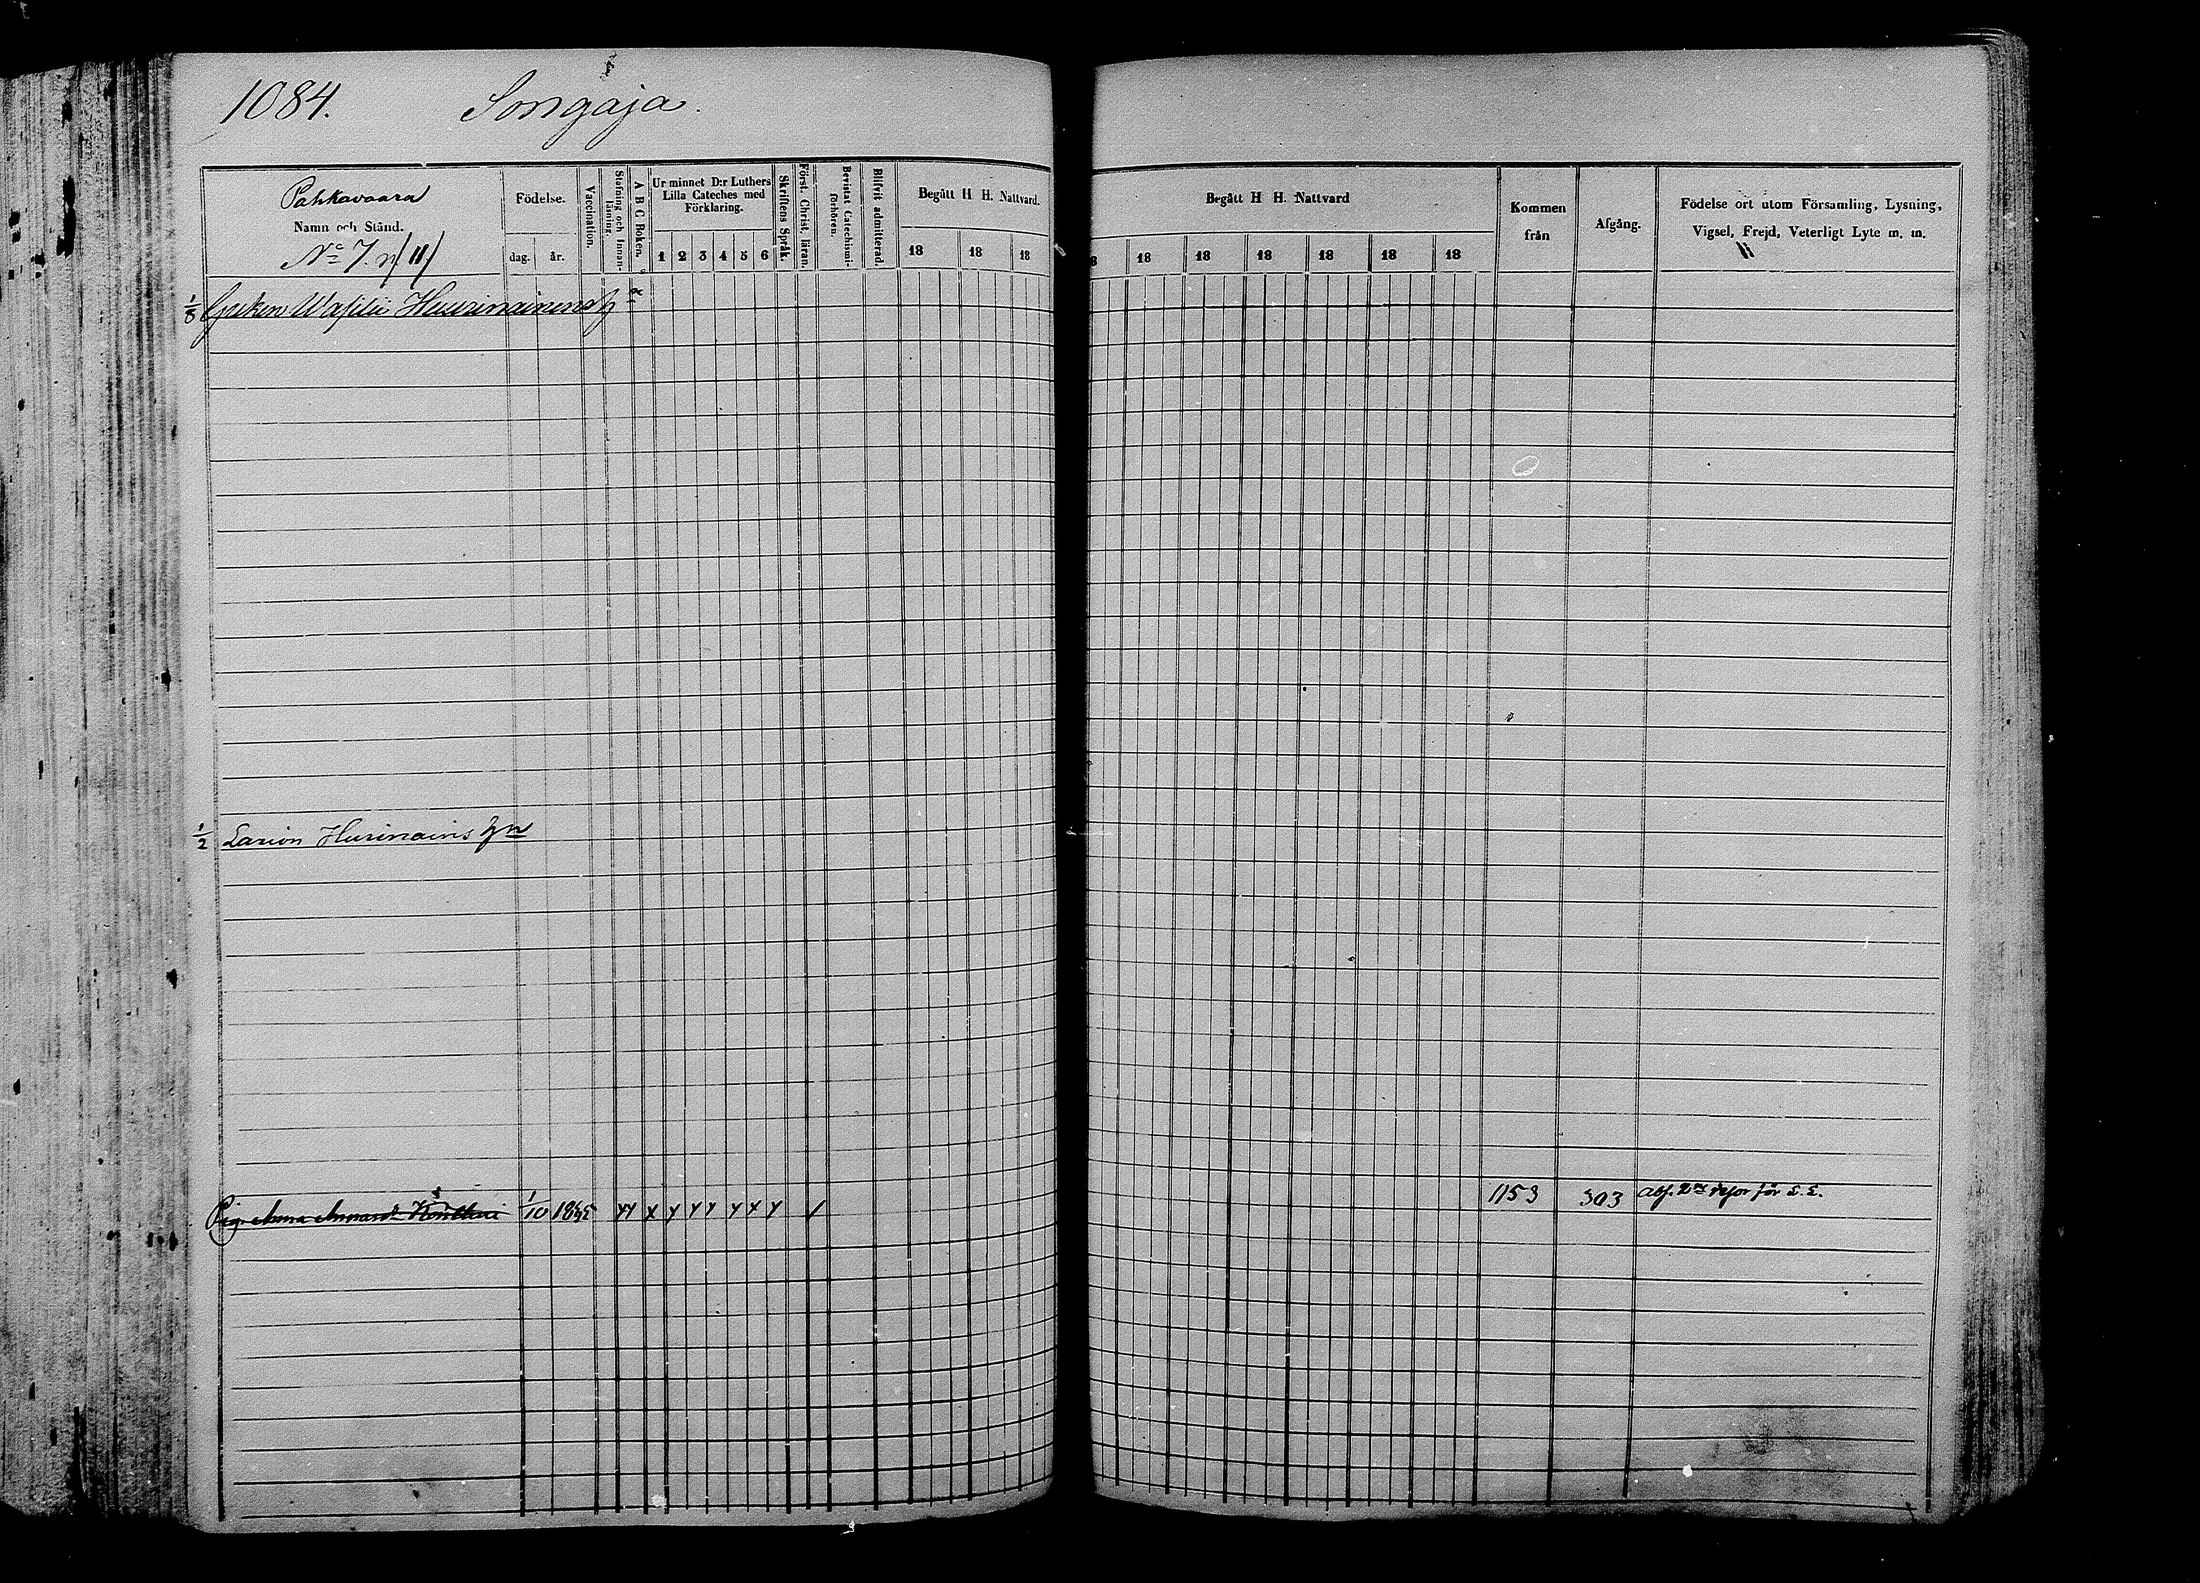 1084. Songaja.
Pahkavaara
Namn och Stånd.
No 7. n/11/
Födelse.
dag. år.
Vaccination.
Stafning och Innan-
läsning.
A B C Boken.
Ur minnet D:r Luthers
Lilla Cateches med
Förklaring.
1 2 3 4 5 6
Skriftens Språk.
Först. Christ. läran.
Bevistat Catechismi-
förhören.
Blifvit admitterad.
Begått H H. Nattvard.
18 18 18
Begått H H. Nattvard
8 18 18 18 18 18 18
Kommen
från
Afgång.
Födelse ort utom Församling, Lysning,
Vigsel, Frejd, Veterligt Lyte m. m.
1/8 Greken Wasilii
1/2 Larion Husinains
Pig. Anna 1/10 1845 1153 303